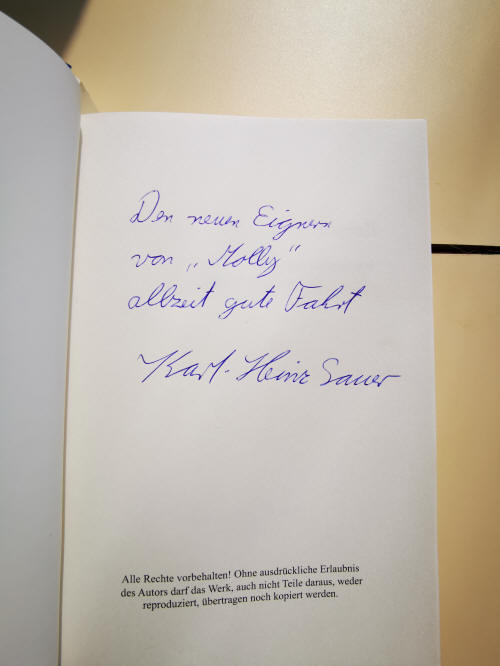 Den neuen Eignern
von „Molly“
allzeit gute Fahrt
Karl-Heinz Sauer
Alle Rechte vorbehalten! Ohne ausdrückliche Erlaubnis
des Autors darf das Werk, auch nicht Teile daraus, weder
reproduziert, übertragen noch kopiert werden.